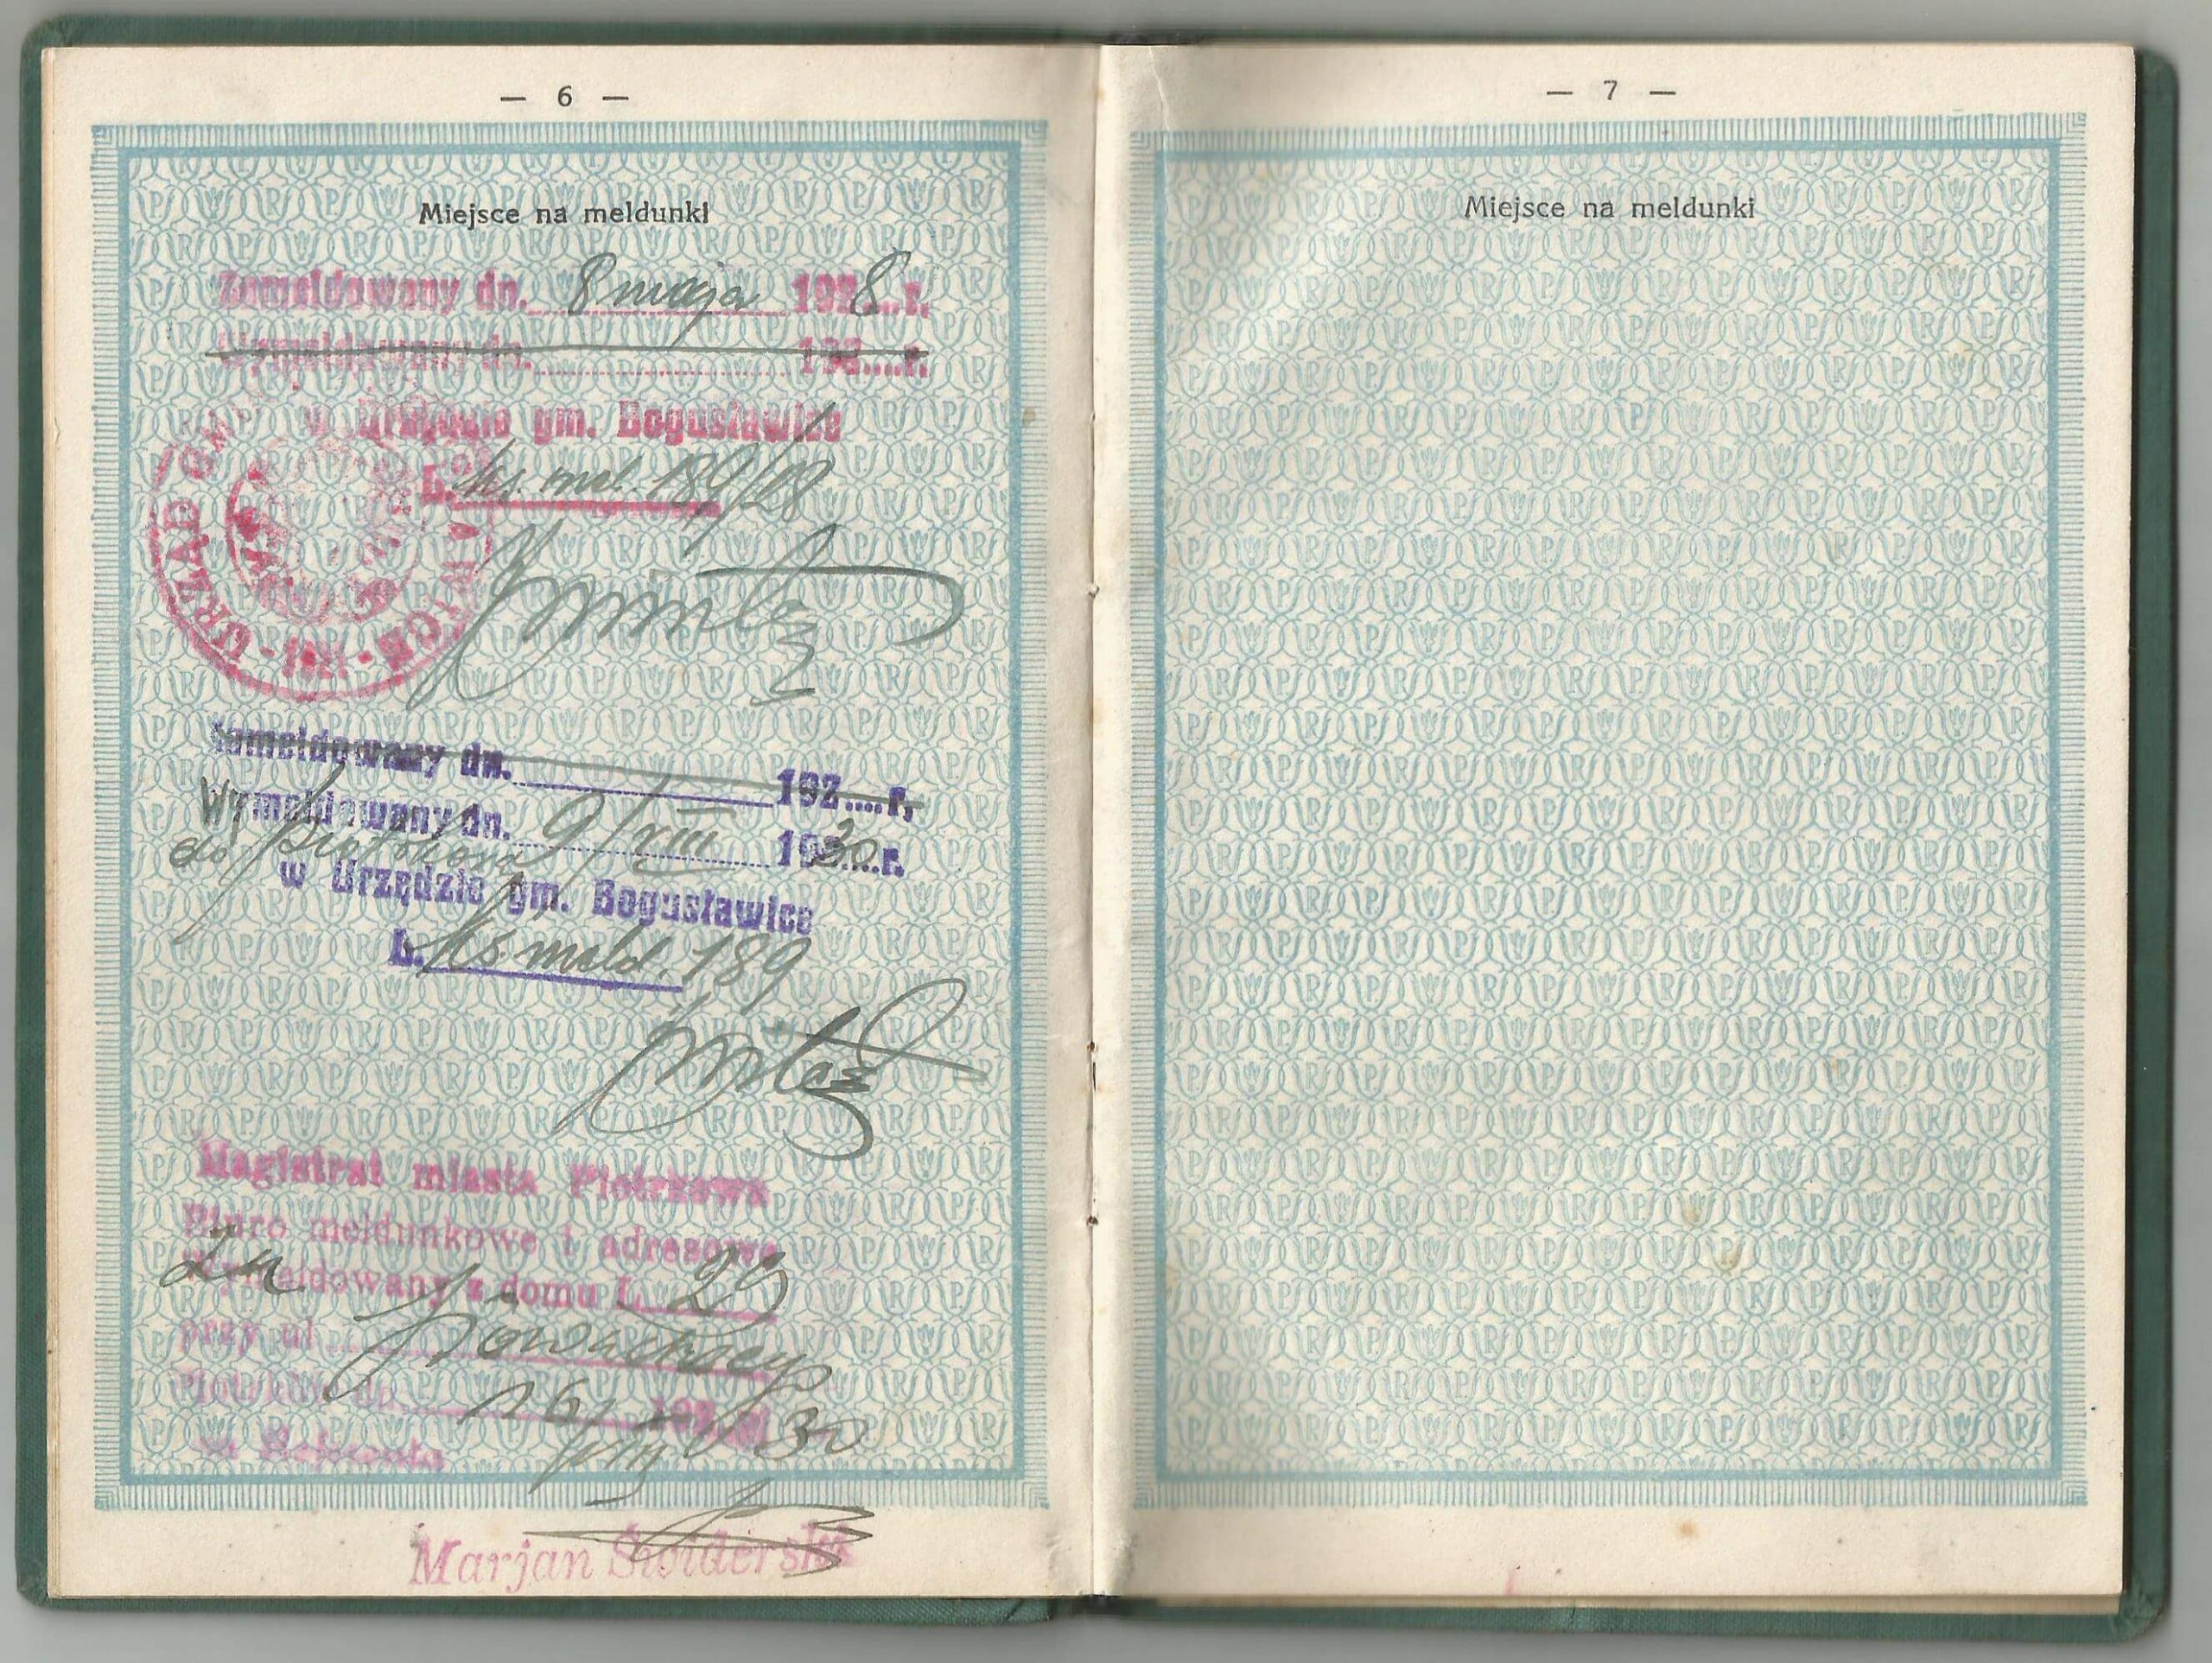 — 6 —
Miejsce na meldunki
Zameldowany dn. 8 maja 1928 r.
Wymeldowany dn. 192....r.
w Urzędzie gm. Bogusławice
L. ks. mel. 189/28
URZĄD GMINY
Zameldowany dn. 192....r,
Wymeldowany dn. 9/VIII 1930 r.
do Piotrkowa
w Urzędzie gm. Bogusławice
L. Ks. meld. 189
Magistrat miasta Piotrkowa
Biuro meldunkowe i adresowe
Za
Wymeldowany z domu L. 29
przy ul.
Piotrków dn. 16/VIII 192 30
w
Marjan Świderski
— 7 —
Miejsce na meldunki